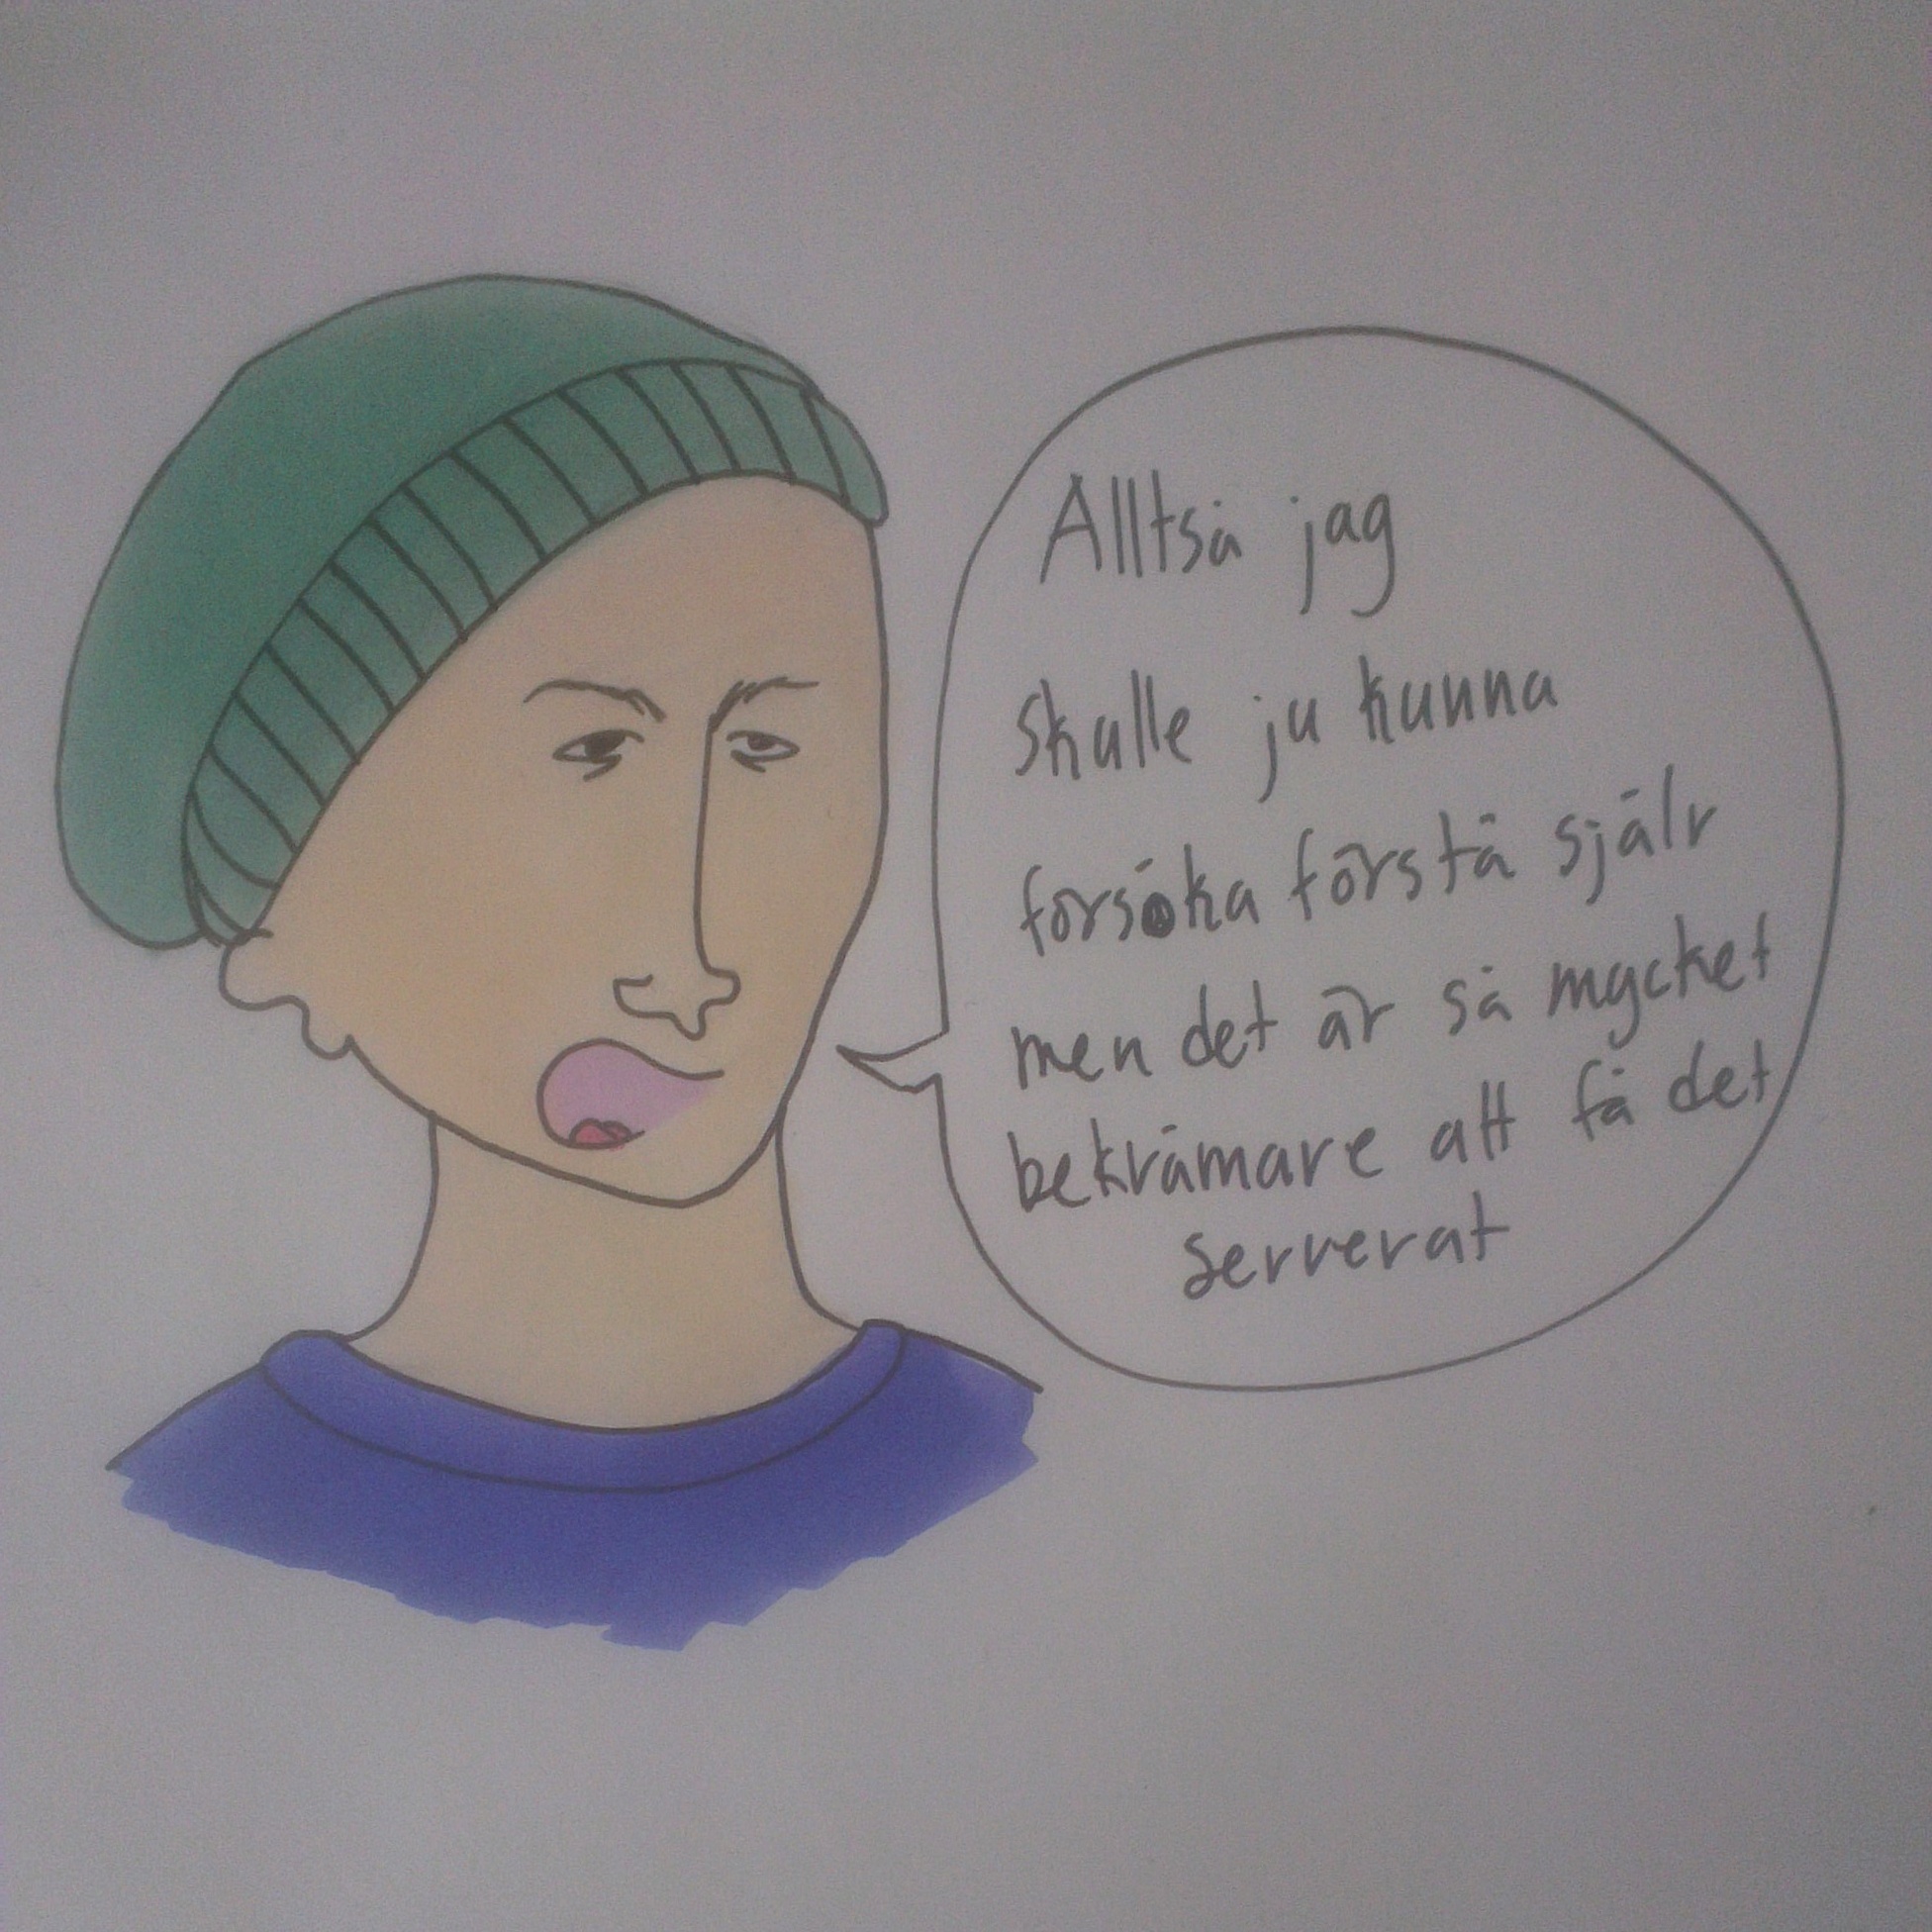 Alltså jag
skulle ju kunna
försöka förstå själv
men det är så mycket
bekvämare att få det
serverat